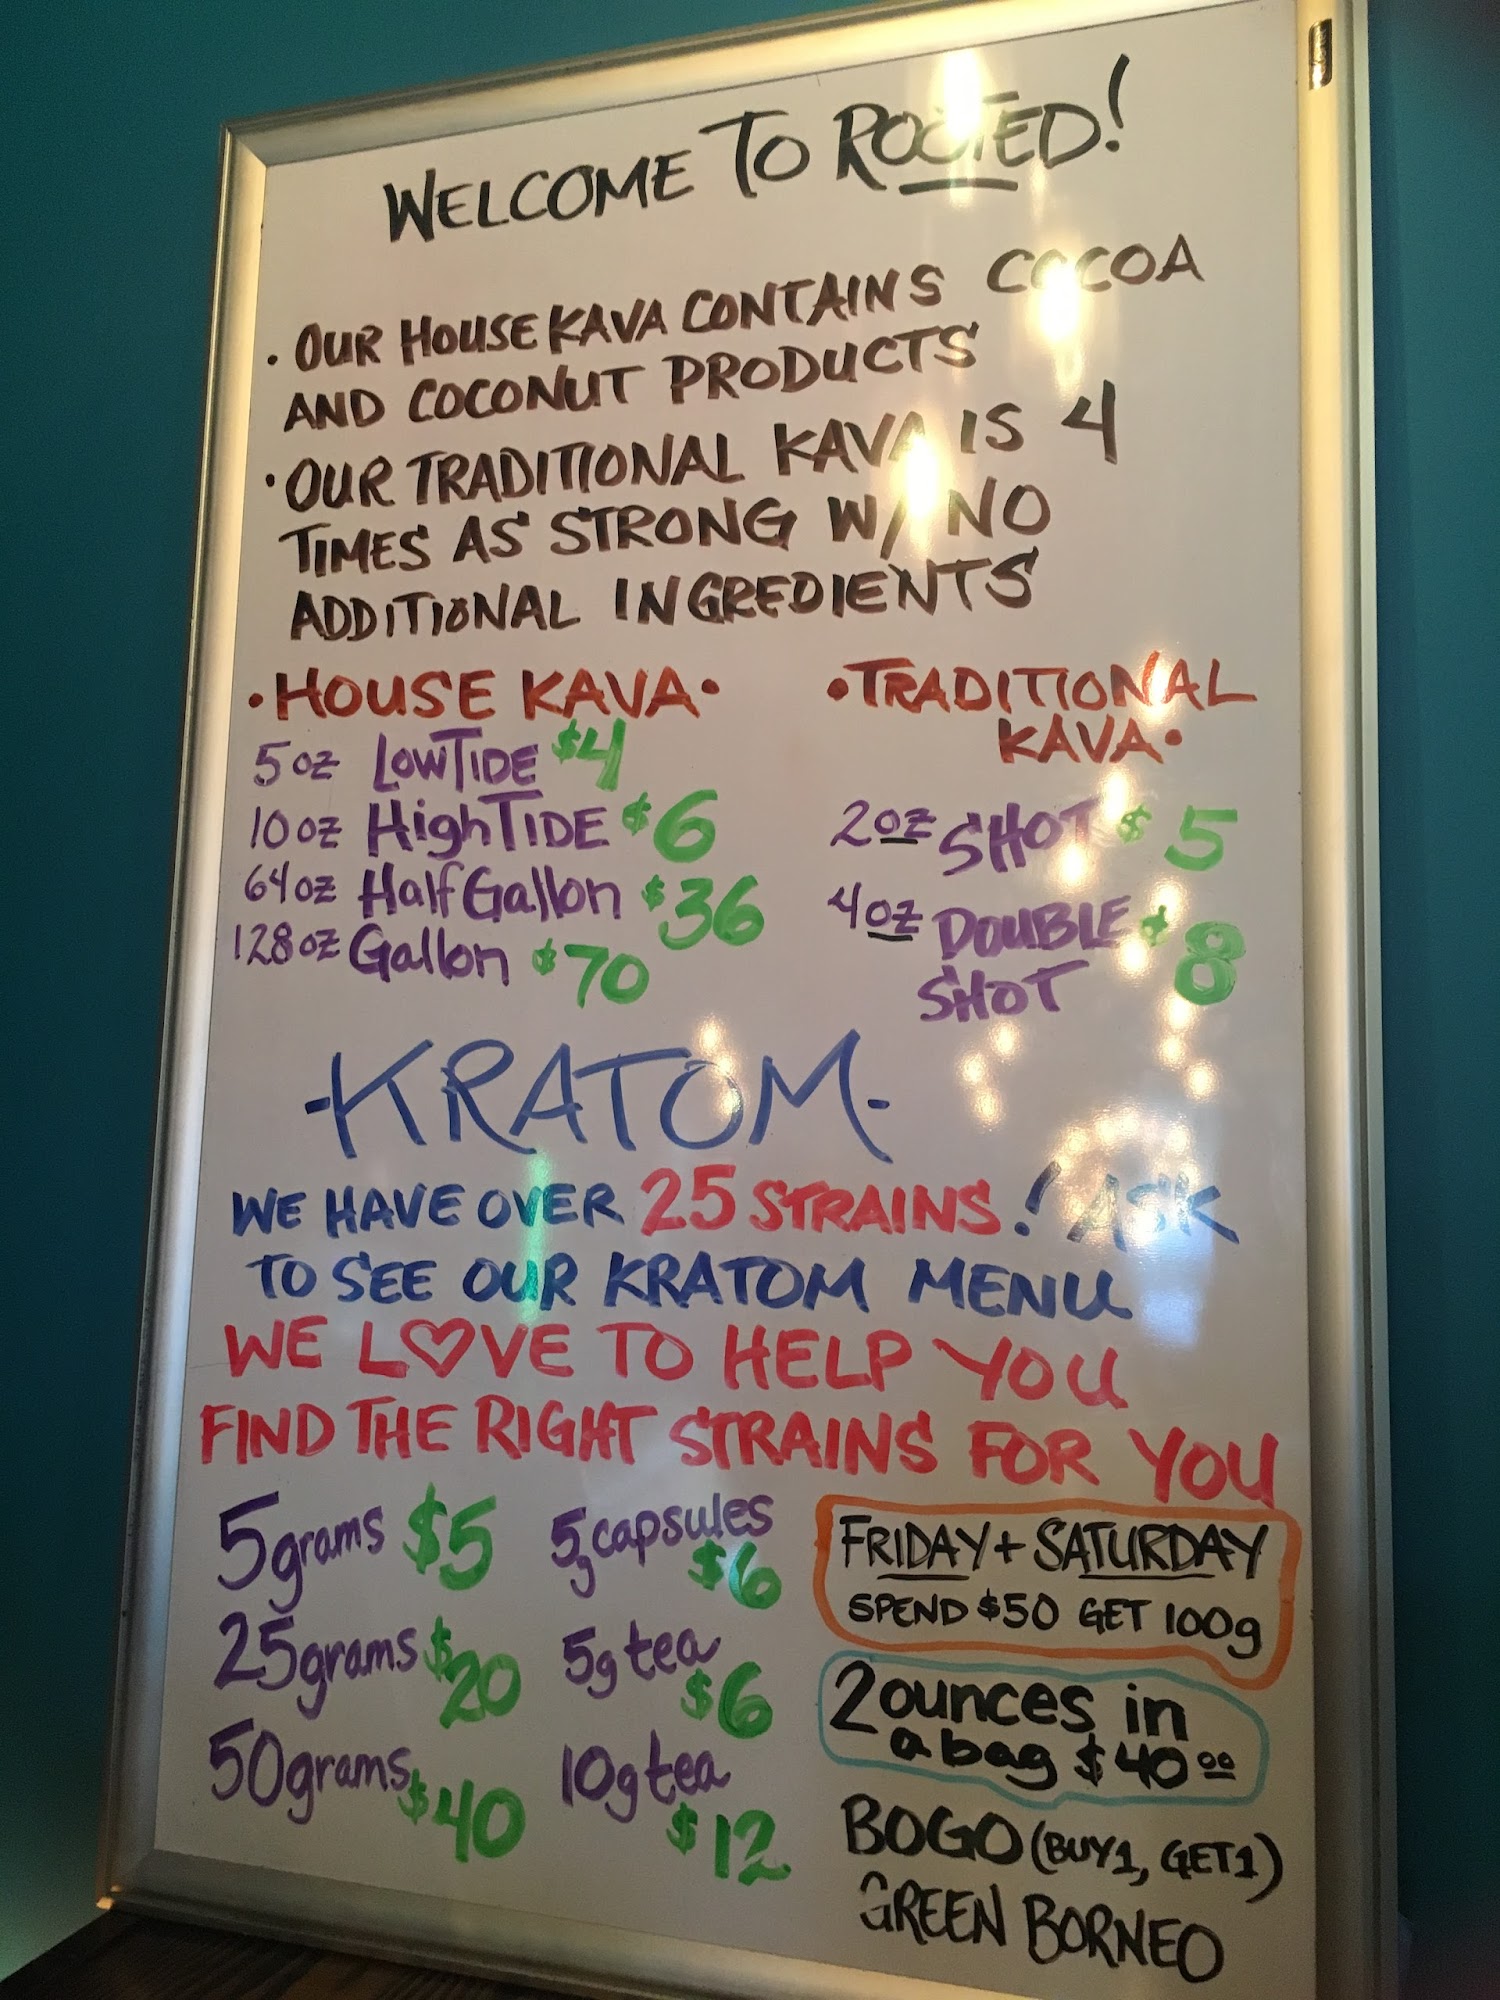 WELCOME TO ROOTED!
· OUR HOUSE KAVA CONTAINS COCOA
AND COCONUT PRODUCTS
· OUR TRADITIONAL KAVA IS 4
TIMES AS STRONG W/ NO
ADDITIONAL INGREDIENTS
· HOUSE KAVA ·
5 oz LOWTIDE $4
10 oz HighTIDE $6
64 oz Half Gallon $36
128 oz Gallon $70
· TRADITIONAL
KAVA ·
2oz SHOT $5
4oz DOUBLE $8
SHOT
-KRATOM-
WE HAVE OVER 25 STRAINS! ASK
TO SEE OUR KRATOM MENU
WE L♡VE TO HELP YOU
FIND THE RIGHT STRAINS FOR YOU
5grams $5
25grams $20
50grams $40
5g capsules
$6
5g tea
$6
10g tea
$12
FRIDAY + SATURDAY
SPEND $50 GET 100g
2 ounces in
a bag $40.00
BOGO (BUY 1, GET 1)
GREEN BORNEO